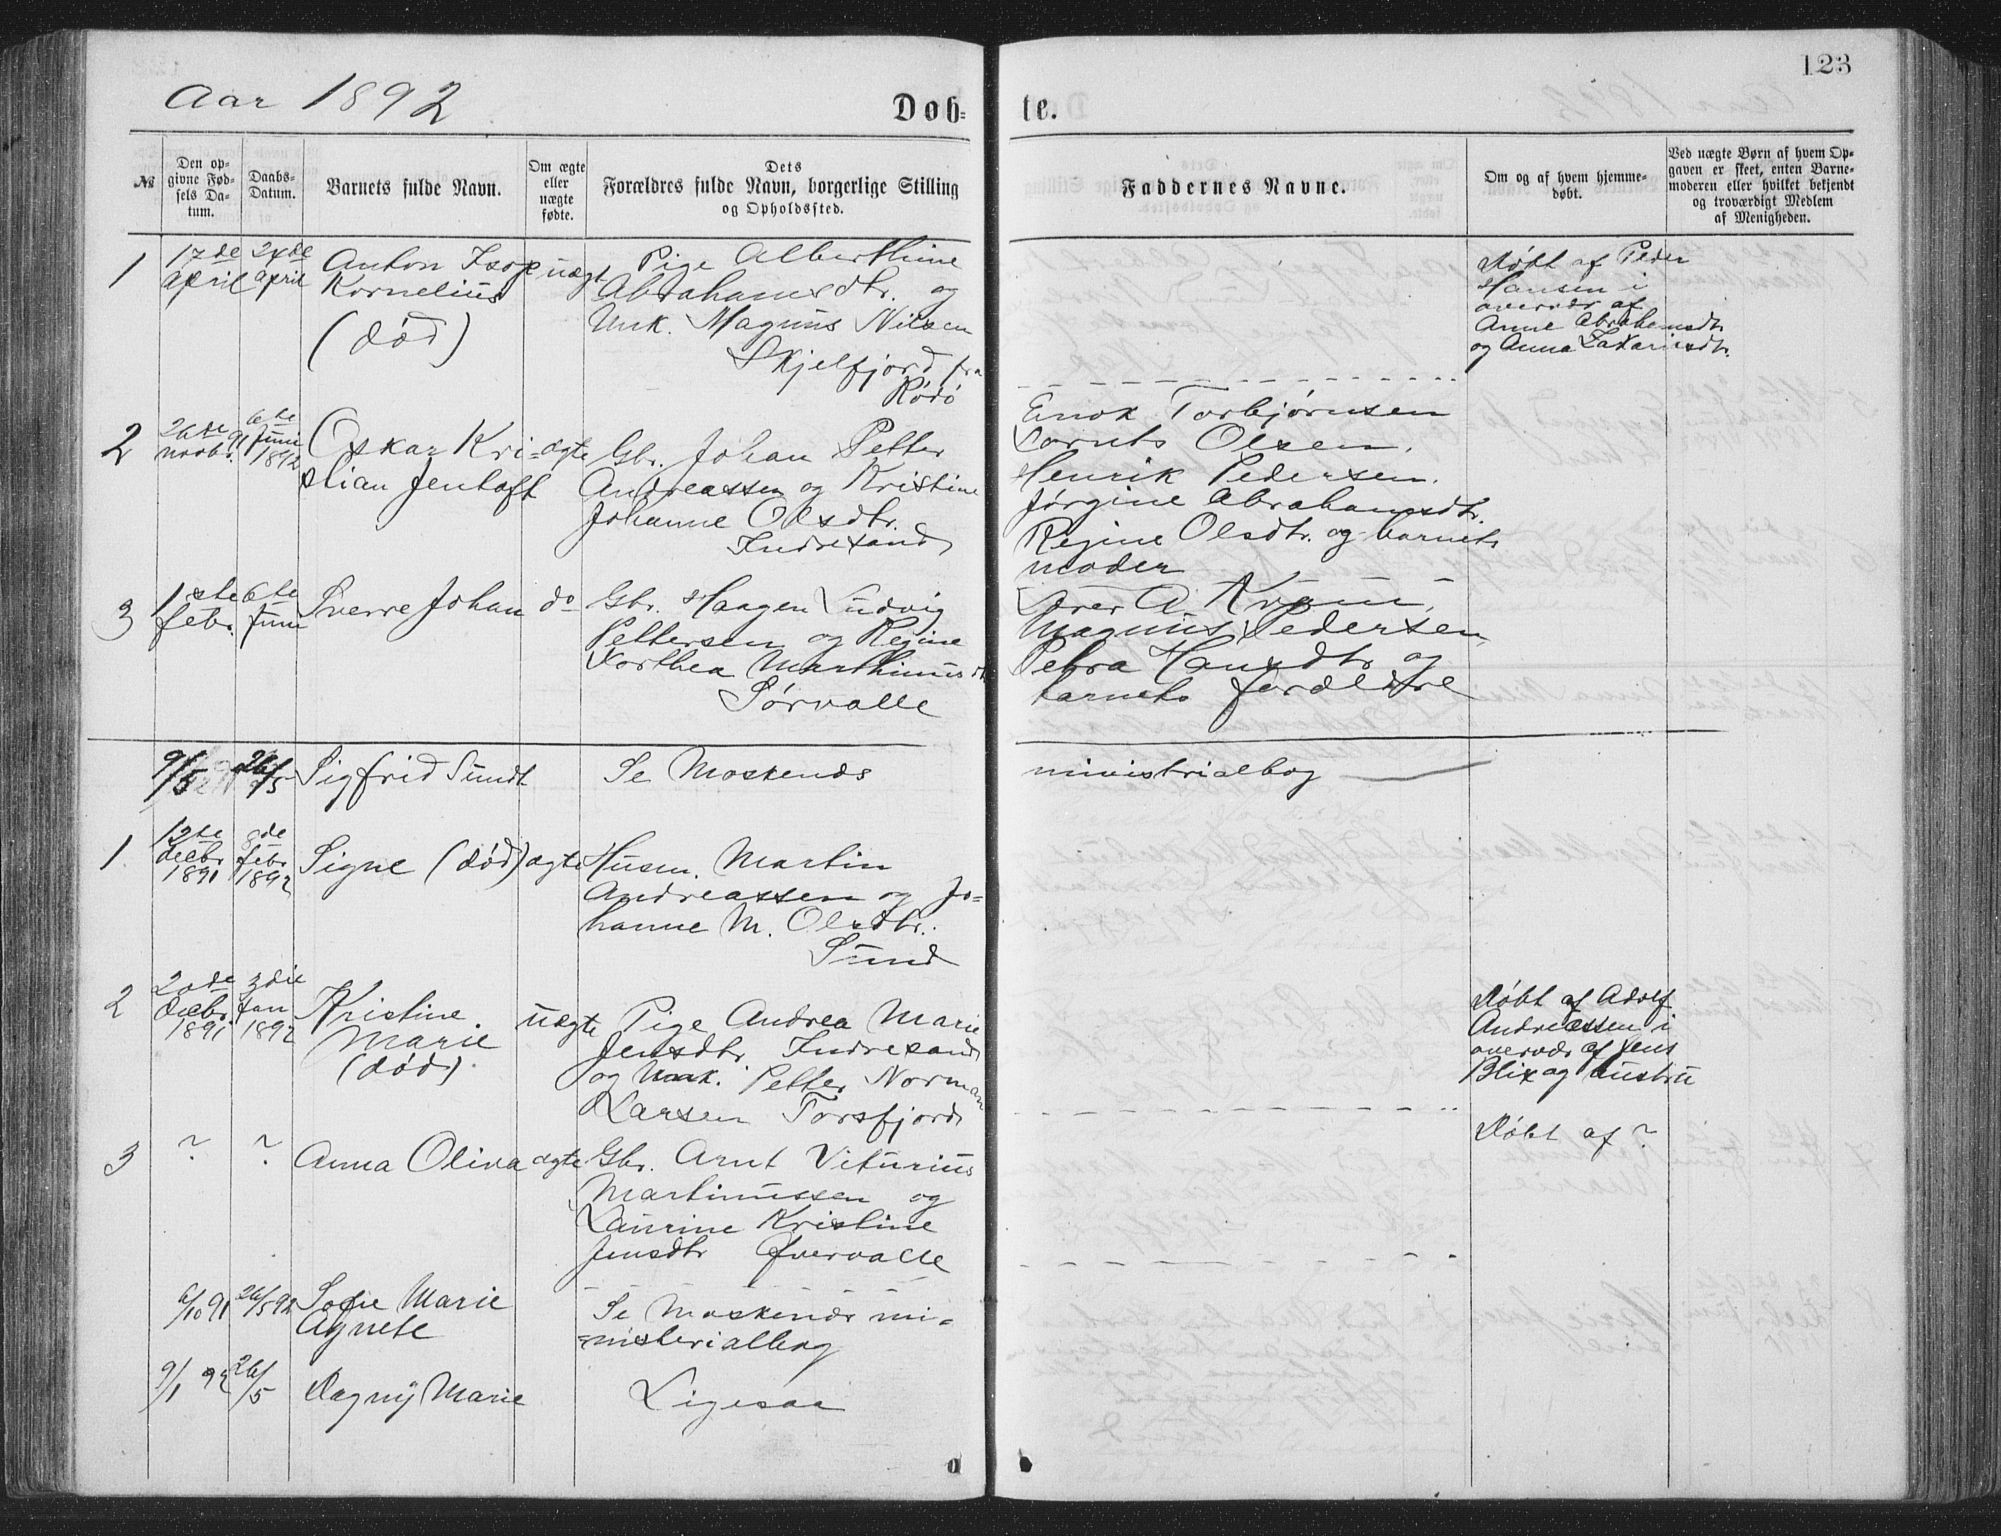 Aar 1892
Døb-
te.
123
№
Den op-
givne Fød-
sels Da-
tum.
Daabs-
Datum.
Barnets fulde Navn.
Om ægte
eller
uægte
fødte.
Dets
Forældres fulde Navn, borgerlige Stilling
og Opholdssted.
Faddernes Navne.
Om og af hvem hjemme-
døbt.
Ved uægte Børn af hvem Op-
gaven er skeet, enten Barne-
moderen eller hvilket bekjendt
og troværdigt Medlem
af Menigheden.
1
17de
april
24de
april
Anton Isop
Kornelius
(død)
uægt
Pige Alberthine
Abrahamsdtr. og
Unk. Magnus Nilsen
Skjelfjord fra
Rødø
Døbt af Peder
Hansen i
overvær af
Anne Abrahamsdtr
og Anna Zakariasdtr.
2
26de
novbr. 91
6te
Juni
1892
Oskar Kri-
stian Jentoft
ægte
Gbr. Johan Petter
Andreassen og Kristine
Johanne Olsdtr.
Indresand
Enok Torbjørnsen
Cornets Olsen,
Henrik Pedersen.
Jørgine Abrahamsdtr.
Regine Olsdtr. og barnets
moder
3
1ste
febr.
6te
Juni
Sverre Johan
do
Gbr. Haagen Ludvig
Pettersen og Regine
Dorthea Marthinusdt
Sørvalle
Magnus Pedersen,
Petra Hansdtr og
barnets forældre
9/5
26/5
Sigfrid Sundt
Se Moskenæs
ministrialbog
1
12te
decbr
1891
8de
febr
1892
Signe (død)
ægte
Husm. Martin
Andreassen og Jo-
hanne M. Olsdtr.
Sund
2
20de
decbr.
1891
3die
Jan
1892
Kristine
Marie
(død)
uægte
Pige Andrea Marie
Jensdtr Indresand
og Unk. Petter Norman
Larsen Torsfjord
Døbt af Adolf
Andreassen i
overvær af Jens
Blix og hustru
3
?
?
Anna Oliva
ægte
Gbr. Arnt Viturius
Martinussen og
Laurine Kristine
Jensdtr Østervalle
Døbt af ?
6/10 91
26/5 92
Sofie Marie
Agnete
Se Moskenæs mi-
nisterialbog
9/1 92
26/5
Dagny Marie
Ligesaa